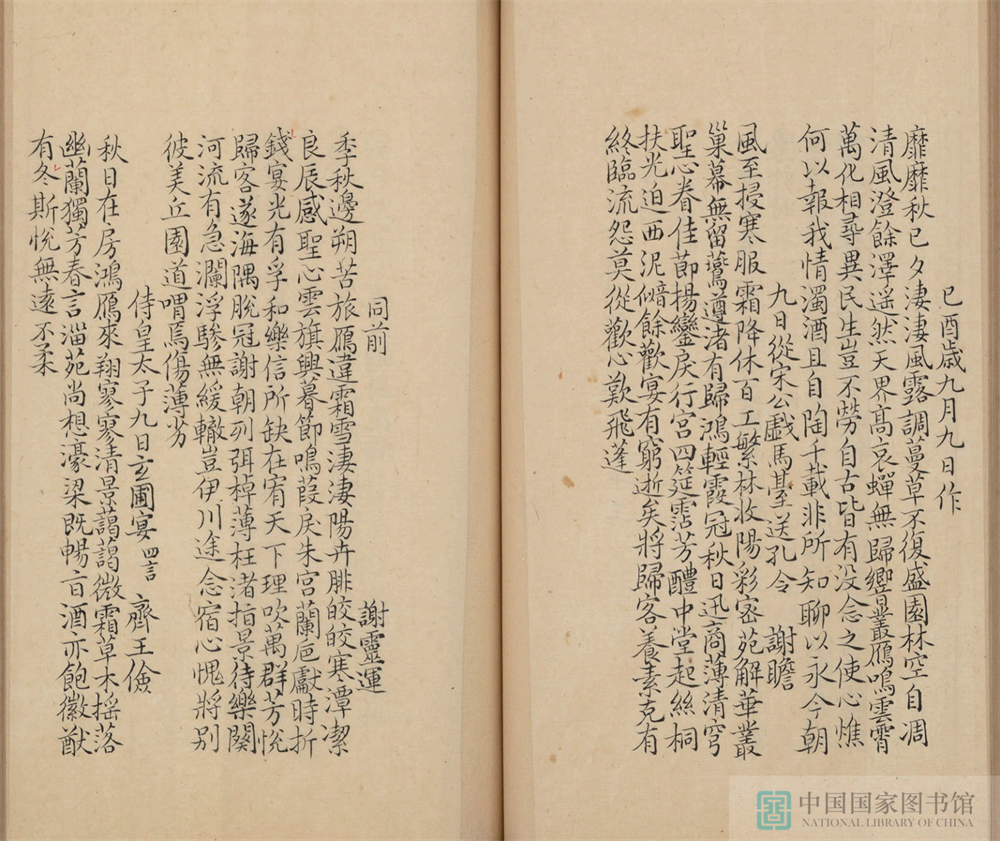 己酉歲九月九日作
靡靡秋已夕淒淒風露調蔓草不復盛園林空自凋
清風澄餘澤遥然天界髙哀蟬無歸響叢鴈鳴雲霄
萬化相尋異民生豈不勞自古皆有没念之使心燋
何以報我情濁酒且自陶千載非所知聊以永今朝
九日從宋公戯馬臺送孔令 謝瞻
風至授寒服霜降休百工繁林收陽彩宻苑解華叢
巢幕無留鷰遵渚有歸鴻輕霞冠秋日迅商薄清穹
聖心眷佳莭揚鑾戾行宫四筵霑芳醴中堂起絲桐
扶光迫西汜懽餘歡宴有窮逝矣將歸客養素克有
終臨流怨莫從歡心歎飛蓬
同前 謝靈運
季秋邊朔苦旅鴈違霜雪淒淒陽卉腓皎皎寒潭潔
良辰感聖心雲旗興暮節鳴葭戾朱宫蘭巵獻時折
錢宴光有孚和樂信所缺在宥天下理吹萬群芳悅
歸客遂海隅脫冠謝朝列弭棹薄枉渚指景待樂闋
河流有急瀾浮驂無緩轍豈伊川途念宿心愧將别
彼美丘園道喟焉傷薄劣
侍皇太子九日玄圃宴 四言 齊王儉
秋日在房鴻鴈來翔寥寥清景藹藹微霜草木摇落
幽蘭獨芳眷言淄苑尚想濠梁既暢旨酒亦飽徽猷
有冬斯悅無遠不柔
中国国家图书馆
NATIONAL LIBRARY OF CHINA